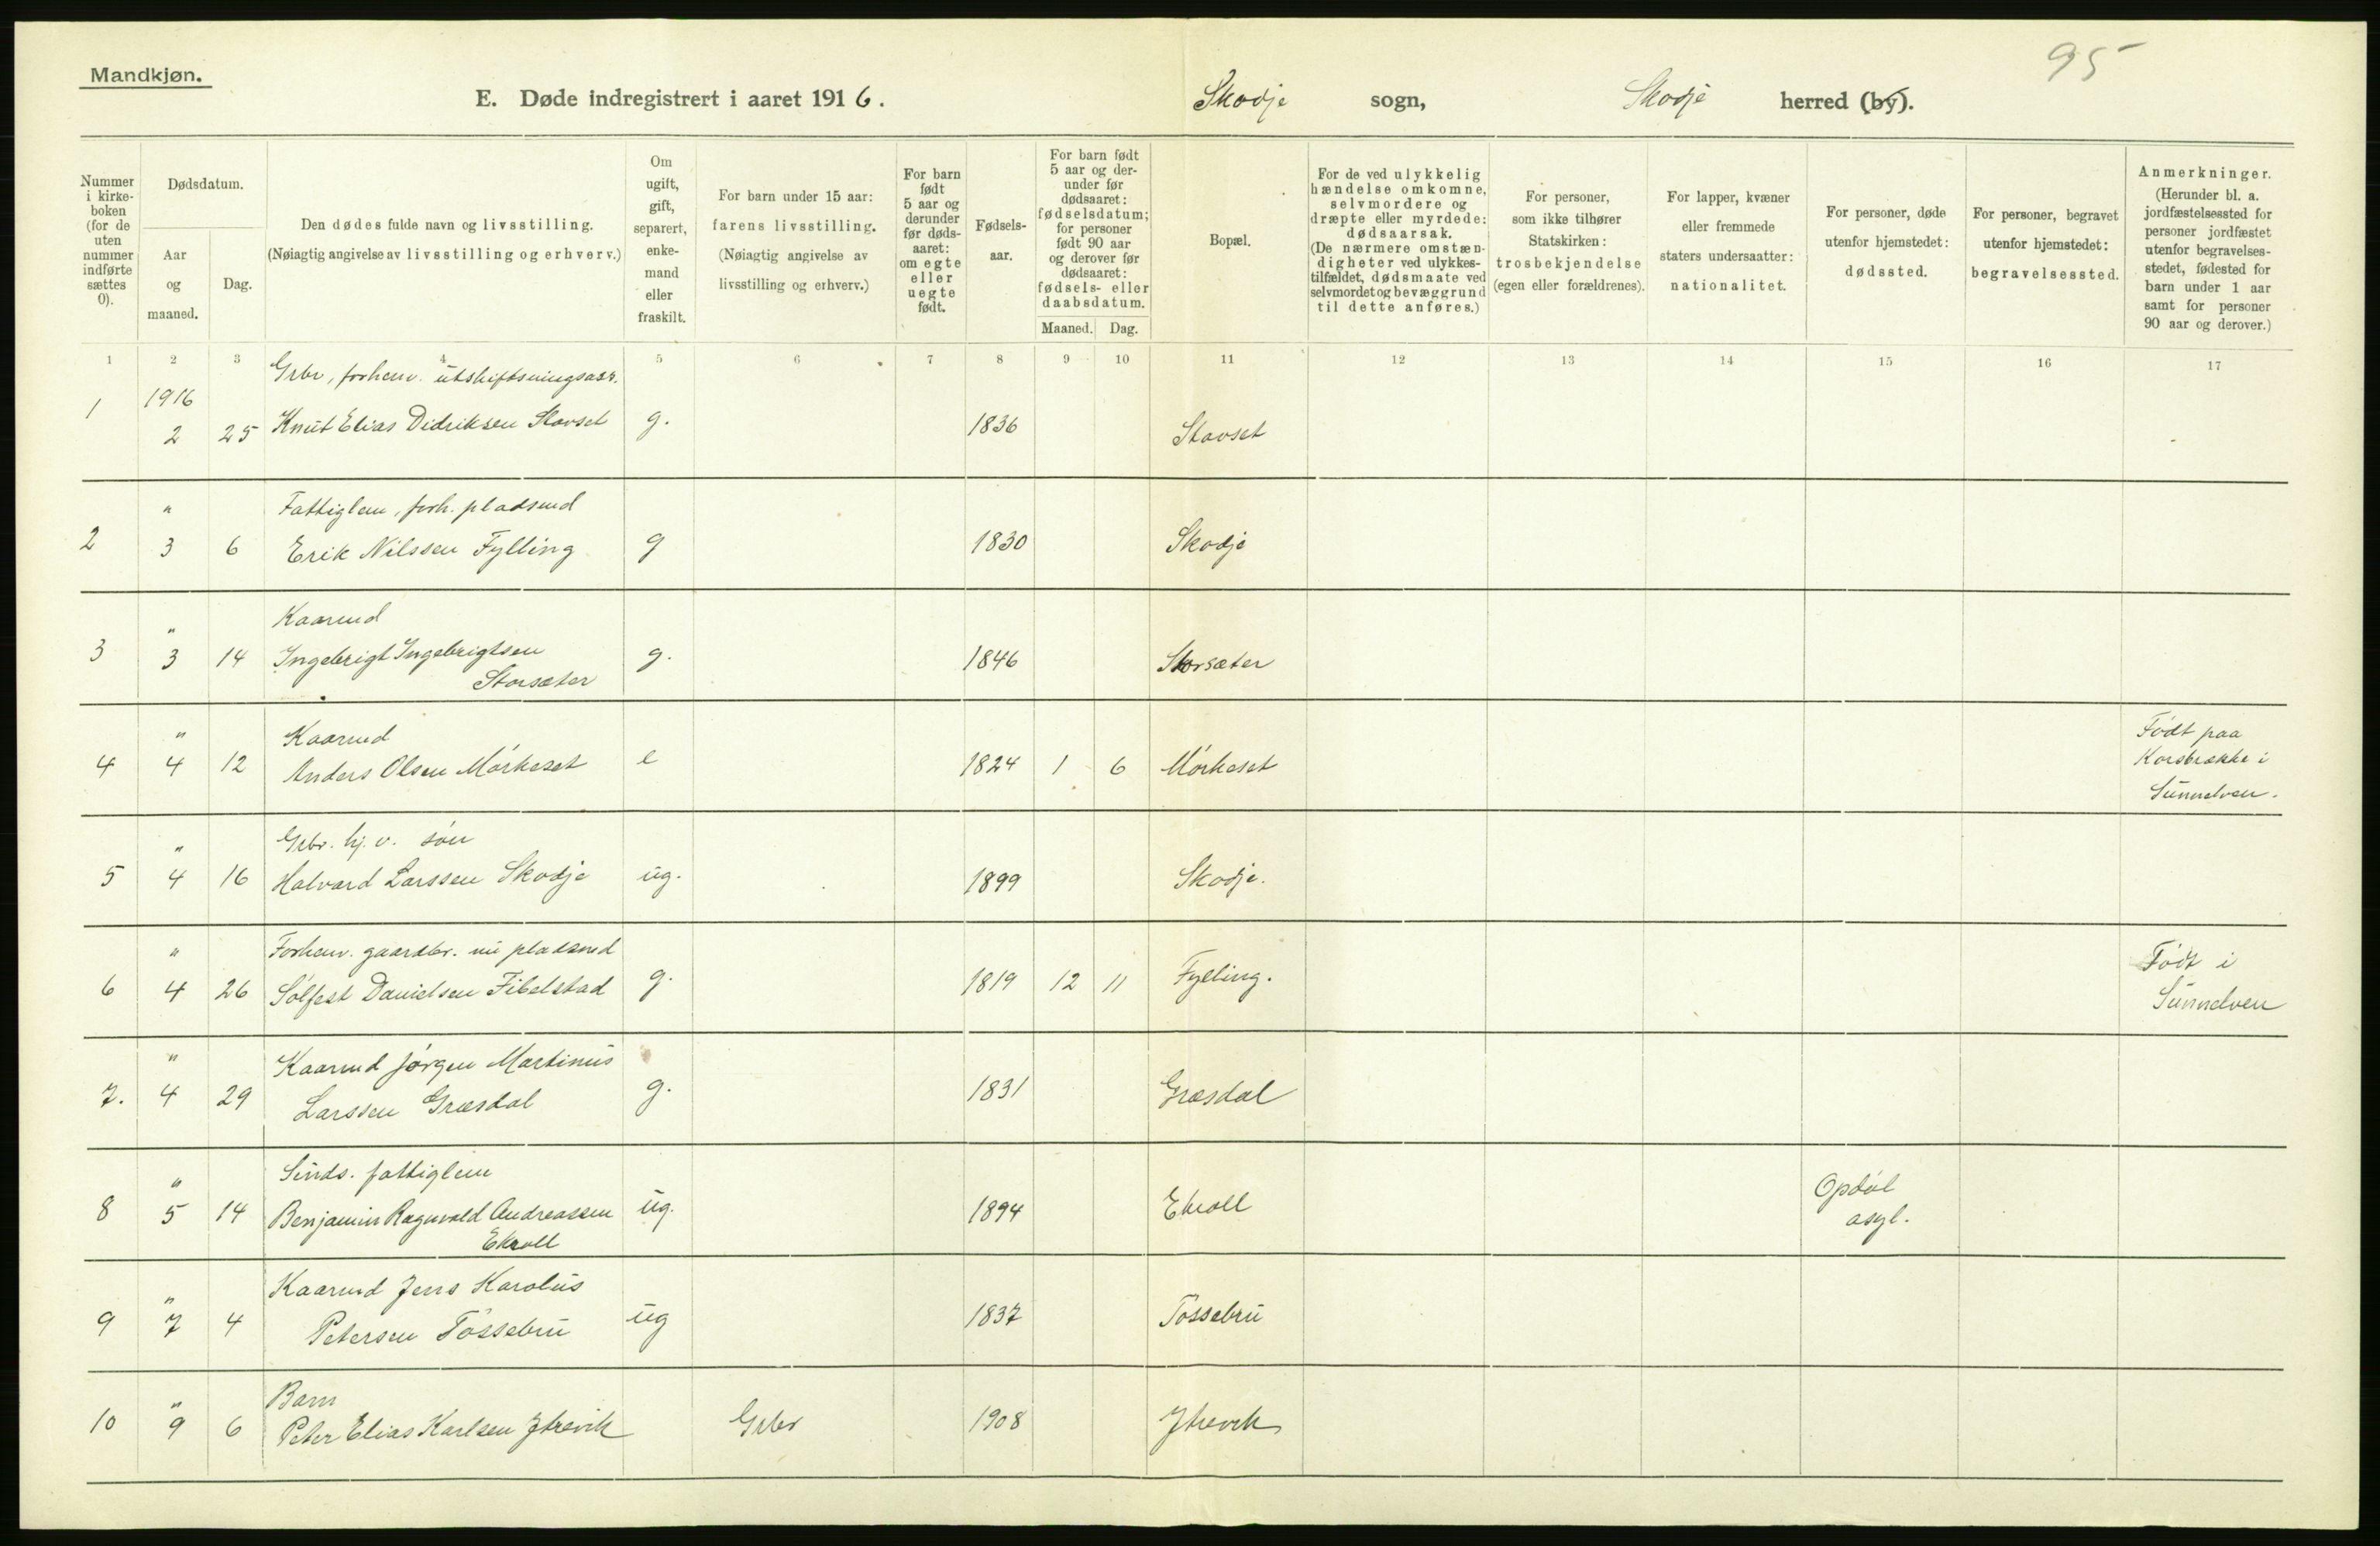 95
Mandkjøn.
E. Døde indregistrert i aaret 1916. Skodje sogn, Skodje herred (by).
Nummer i kirke-boken (for de uten nummer indførte sættes 0).
Dødsdatum.
Aar og maaned.
Dag.
Den dødes fulde navn og livsstilling.
(Nøiagtig angivelse av livsstilling og erhverv.)
Om ugift, gift, separert, enke-mand eller fraskilt.
For barn under 15 aar:
farens livsstilling.
(Nøiagtig angivelse av
livsstilling og erhverv.)
For barn født 5 aar og derunder før døds-aaret: om egte eller uegte født.
Fødsels-aar.
For barn født 5 aar og der-under før dødsaaret: fødselsdatum; for personer født 90 aar og derover før dødsaaret: fødsels- eller daabsdatum.
Maaned. Dag.
Bopæl.
For de ved ulykkelig hændelse omkomne, selvmordere og dræpte eller myrdede: dødsaarsak.
(De nærmere omstæn-digheter ved ulykkes-tilfældet, dødsmaate ved selvmordet og bevæggrund til dette anføres.)
For personer, som ikke tilhører Statskirken: trosbekjendelse (egen eller forældrenes).
For lapper, kvæner eller fremmede staters undersaatter: nationalitet.
For personer, døde utenfor hjemstedet: dødssted.
For personer, begravet utenfor hjemstedet: begravelsessted.
Anmerkninger.
(Herunder bl. a. jordfæstelsessted for personer jordfæstet utenfor begravelses-stedet, fødested for barn under 1 aar samt for personer 90 aar og derover.)
1 2 3 4 5 6 7 8 9 10 11 12 13 14 15 16 17
Grbr, forhenv. utskiftningsass.
1 1916 2 25 Knut Elias Didriksen Stavset g. 1836 Stavset
Fattiglem, forh. pladsmd
2 " 3 6 Erik Nilssen Fylling g 1830 Skodje
Kaarmd
3 " 3 14 Ingebrigt Ingebrigtsen g. 1846 Storsæter
Storsæter
Kaarmd
4 " 4 12 Anders Olsen Mørkeset e 1824 1 6 Mørkeset
Født paa
Korsbrække i
Sunnelven.
Grbr. hj. v. søn
5 " 4 16 Halvard Larssen Skodje ug. 1899 Skodje.
Forhenv. gaardbr. nu pladsmd
6 " 4 26 Sølfest Danielsen Fibelstad g. 1819 12 11 Fylling.
Født i
Sunnelven
Kaarmd Jørgen Martinus
7. " 4 29 Larssen Græsdal g. 1831 Græsdal
Sinds. fattiglem
8 " 5 14 Benjamin Ragnvald Andreassen ug. 1894 Ekroll Opdøl
Ekroll asyl.
Kaarmd Jens Karolus
9 " 7 4 Petersen Tøssebru ug 1837 Tøssebru
Barn
10 " 9 6 Peter Elias Karlsen Ytrevik Grbr 1908 Ytrevik